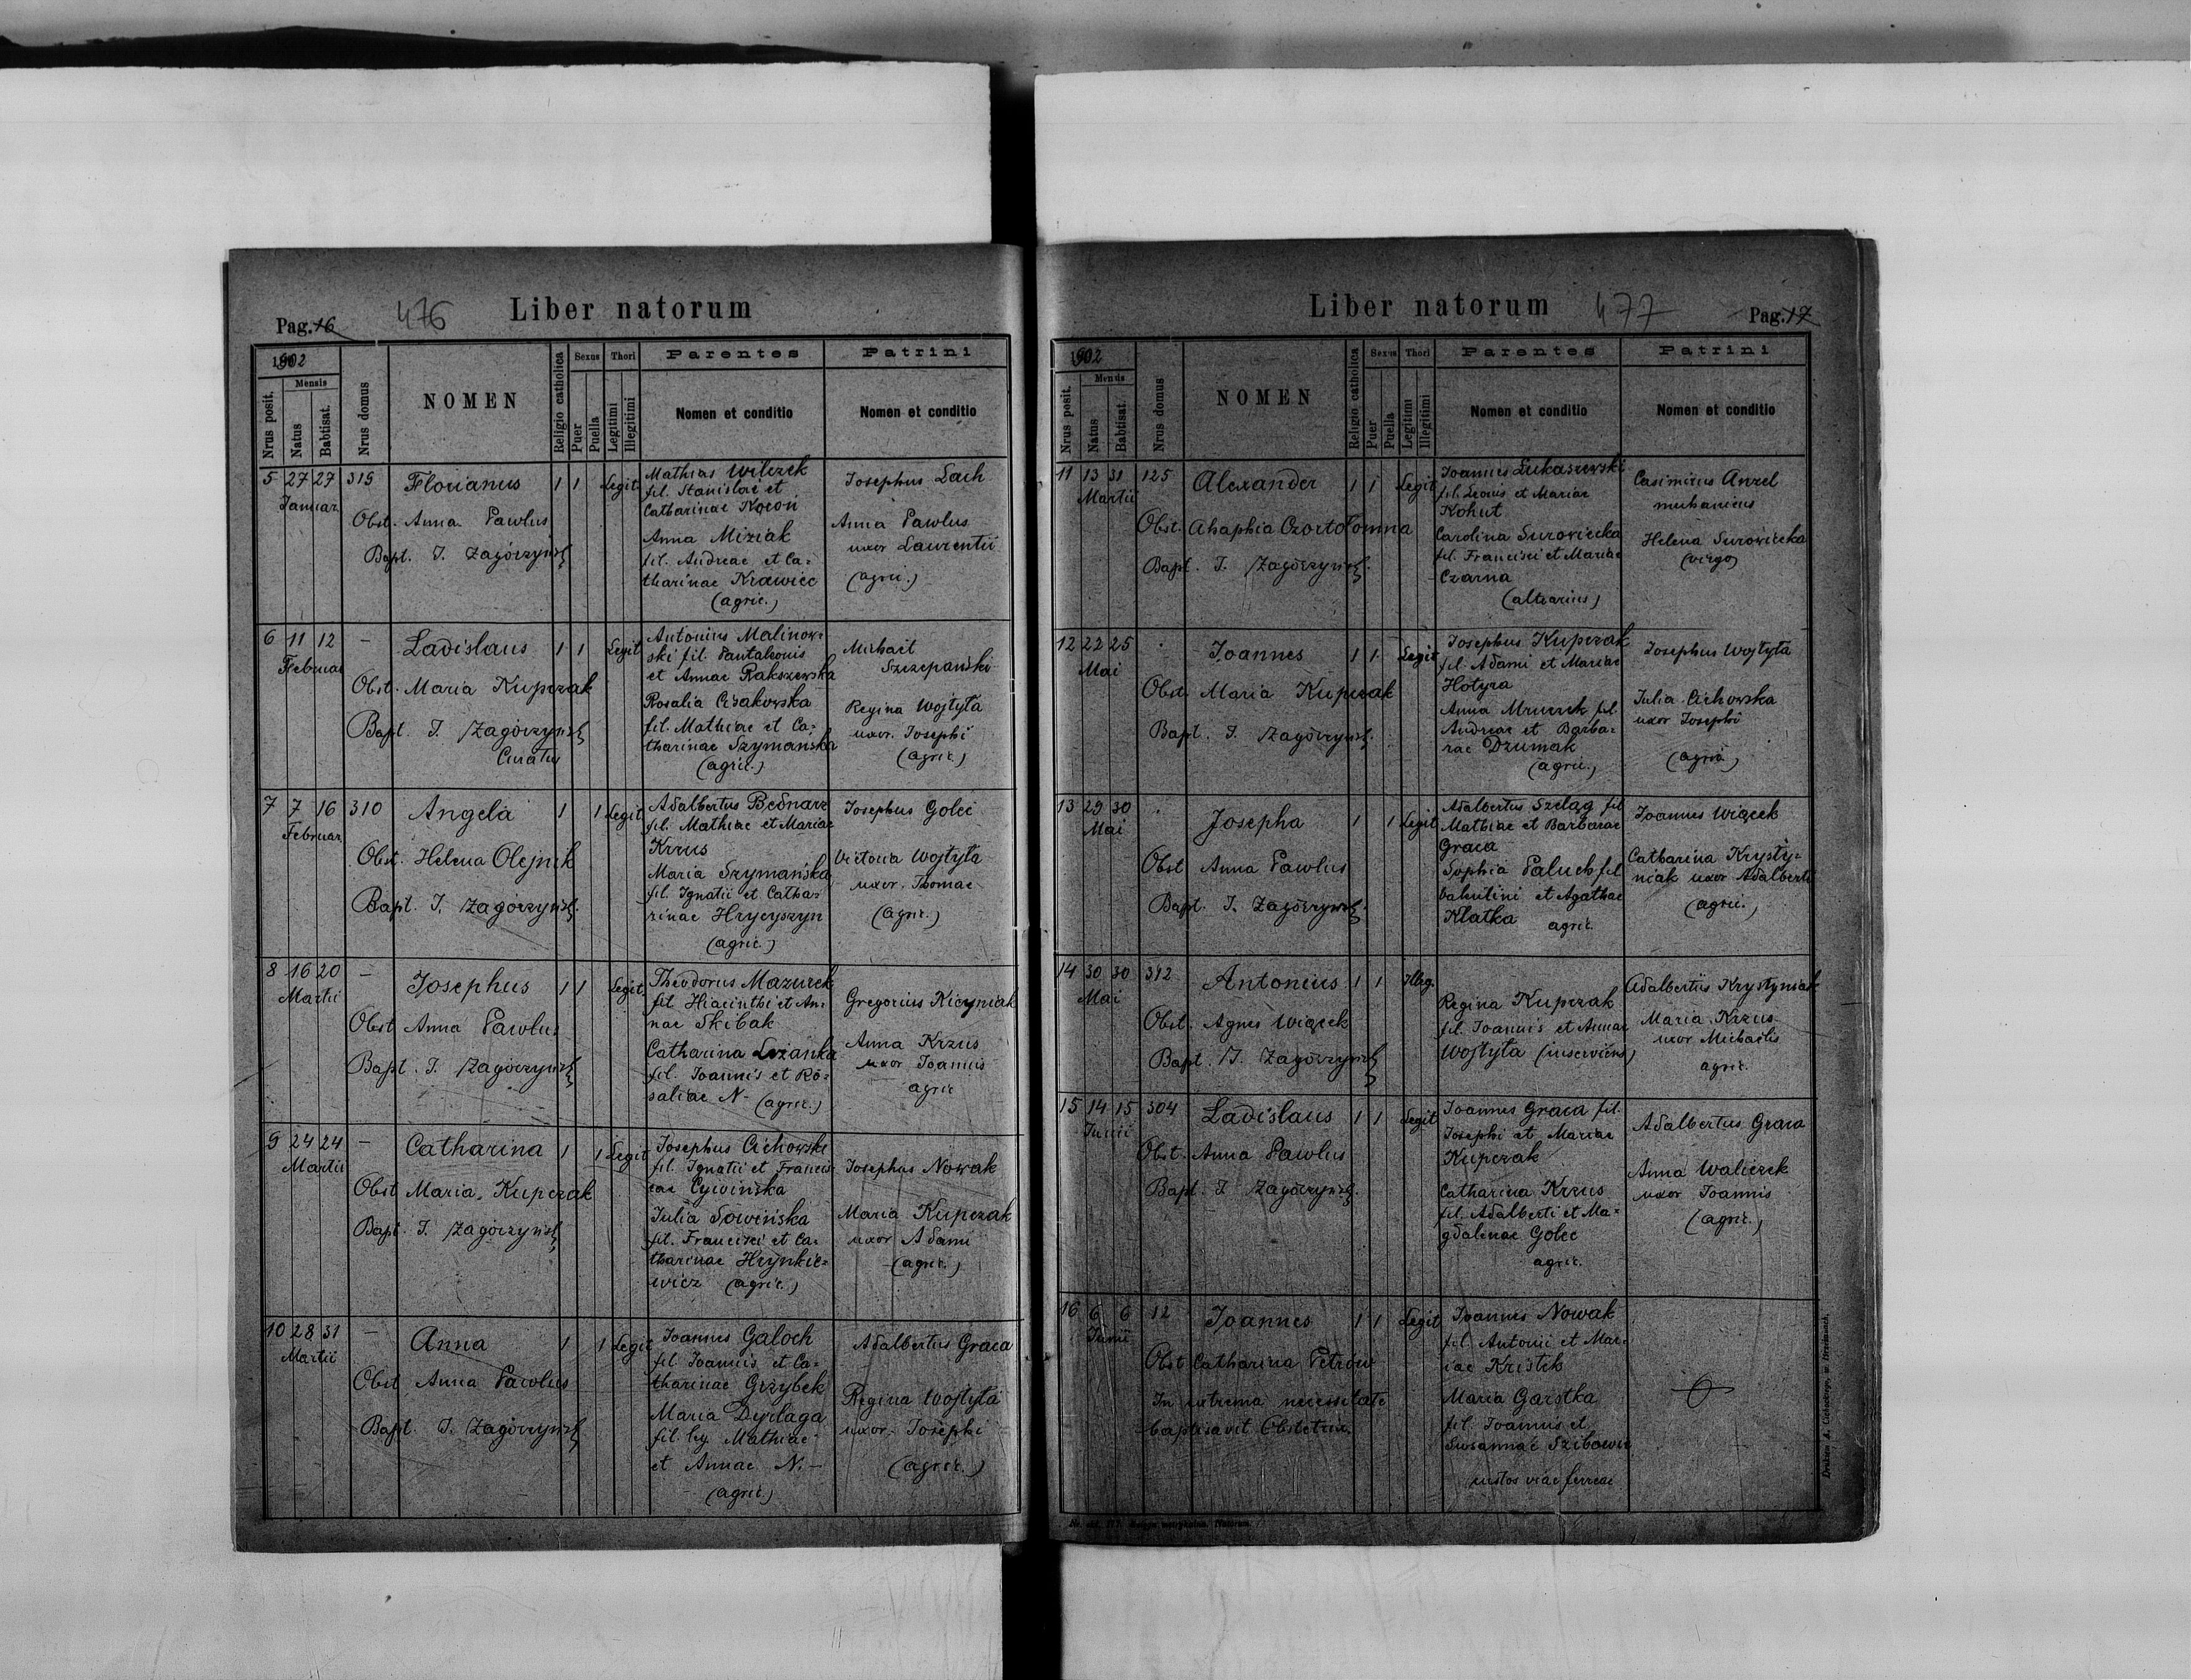 Liber natorum
Pag. 16
476
1902
Nrus posit.
Mensis
Natus
Babtisat.
Nrus domus
NOMEN
Religio catholica
Sexus
Puer
Puella
Thori
Legitimi
Illegitimi
Parentes
Nomen et conditio
Patrini
Nomen et conditio
5 27 27 315 Florianus 1 1 Legit.
Januar
Obst. Anna Pawlus
Bapt. J. Zagórzyński
Mathias Wilczek
fil. Stanislai et
Catharinae Kocoń
Anna Miziak
fil. Andreae et Ca-
tharinae Krawiec
(agric.)
Josephus Lach
Anna Pawlus
uxor Laurentii
(agric.)
6 11 12 – Ladislaus 1 1 Legit
Februar
Obst. Maria Kupczak
Bapt. J. Zagórzyński
Curatus
Antonius Malinow-
ski fil. Pantaleonis
et Annae Rakszewska
Rosalia Cisakowska
fil. Mathiae et Ca-
tharinae Szymańska
(agric.)
Michael
Szczepański
Regina Wojtyła
uxor. Josephi
(agric.)
7 7 16 310 Angela 1 1 Legit.
Februar
Obst. Helena Olejnik
Bapt. J. Zagórzyński
Adalbertus Bednarz
fil. Mathiae et Mariae
Krzus
Maria Szymańska
fil. Ignatii et Catha-
rinae Hrycyszyn
(agric.)
Josephus Golec
Victoria Wojtyła
uxor. Thomae
(agric.)
8 16 20 – Josephus 1 1 Legit.
Martii
Obst Anna Pawlus
Bapt. J. Zagórzyński
Theodorus Mazurek
fil Hiacinthi et An-
nae Skibak
Catharina
fil. Joannis et Ro-
saliae N- (agric.)
Gregorius Kicyniak
Anna Krzus
uxor Joannis
agric
9 24 24 – Catharina 1 1 Legit
Martii
Obst Maria Kupczak
Bapt. J. Zagórzyński
Josephus Cichowski
fil. Ignatii et Francis-
cae Cywińska
Julia Sowińska
fil. Francisci et Ca-
tharinae Hrynkie-
wicz (agric.)
Josephus Nowak
Maria Kupczak
uxor Adami
(agric.)
10 28 31 – Anna 1 1 Legit
Martii
Obst Anna Pawlus
Bapt. J. Zagórzyński
Joannes Galoch
fil Joannis et Ca-
tharinae Grzybek
Maria Dyrlaga
fil. leg. Mathiae
et Annae N.-
(agric.)
Adalbertus Graca
Regina Wojtyła
uxor. Josephi
(agric.)
Liber natorum
477
Pag. 17
1902
Nrus posit.
Mensis
Natus
Babtisat.
Nrus domus
NOMEN
Religio catholica
Sexus
Puer
Puella
Thori
Legitimi
Illegitimi
Parentes
Nomen et conditio
Patrini
Nomen et conditio
11 13 31 125 Alexander 1 1 Legit
Martii
Obst. Ahaphia Czortołomna
Bapt. J. Zagórzyński
Joannes Łukaszewski
fil. Leonis et Mariae
Kohut
Carolina Surowiecka
fil. Francisci et Mariae
Czarna
Casimirus
mechanicus
Helena Surowiecka
(virgo)
12 22 25 Joannes 1 1 Legit
Mai
Obst. Maria Kupczak
Bapt. J. Zagórzyński.
Josephus Kupczak
fil. Adami et Mariae
Hotyra
Anna Mruczek fil.
Andreae et Barba-
rae Dzumak
(agric.)
Josephus Wojtyła
Julia Cichowska
uxor Josephi
13 29 30 Josepha 1 1 Legit
Mai
Obst Anna Pawlus
Bapt. J. Zagórzyński
Adalbertus Szeląg fil
Mathiae et Barbarae
Graca
Sophia Paluch fil
Valentini et Agathae
Klatka agric.
Joannes Wiącek
Catharina Krysty-
niak uxor Adalberti
(agric.)
14 30 30 312 Antonius 1 1 Illeg.
Mai
Obst. Agnes Wiącek
Bapt. J. Zagórzyński
Regina Kupczak
fil. Joannis et Annae
Wojtyła (inserviens)
Adalbertus Krystyniak
Maria Krzus
uxor Michaelis
agric.
15 14 15 304 Ladislaus 1 1 Legit
Junii
Obst. Anna Pawlus
Bapt. J Zagórzyński.
Joannes Graca fil.
Josephi et Mariae
Kupczak
Catharina Krzus
fil. Adalberti et Ma-
gdalenae Golec
agric.
Adalbertus Graca
Anna Waliczek
uxor Joannis
(agric.)
16 6 6 12 Joannes 1 1 Legit
Junii
Obst Catharina Petrów
In extrema necessitate
baptisavit Obstetrix
Joannes Nowak
fil. Antonii et Mar-
iae Kristek
Maria Garstka
fil. Joannis et
Susannae
custos viae ferreae